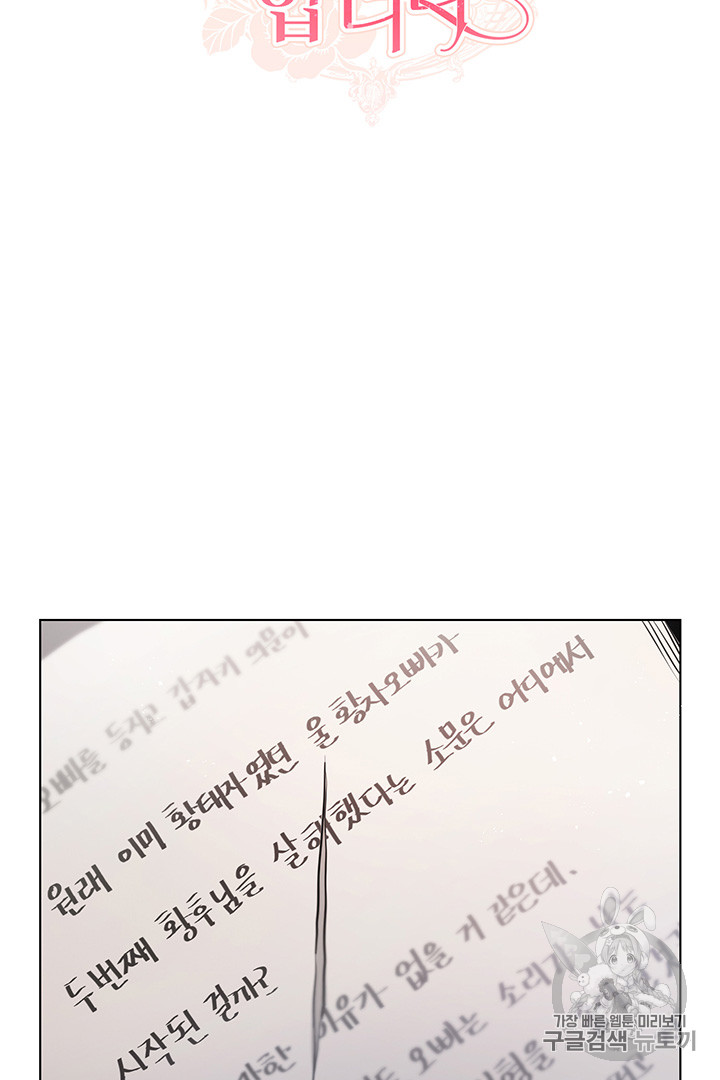 입니다
오빠를 등지고 갑자기 의문이
원래 이미 황태자였던 울 황자오빠가
두번째 황후님을 살해했다는 소문은 어디에서
시작된 걸까?
이유가 없을 거 같은데.
오빠는 소리
가장 빠른 웹툰 미리보기
구글검색 뉴토끼